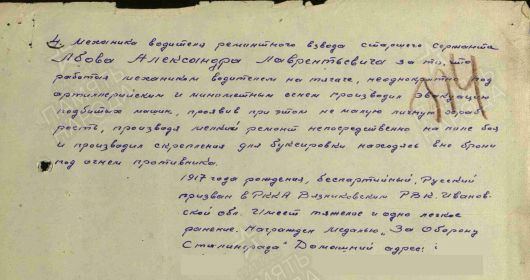 4. Механика водителя ремонтного взвода старшего сержанта
Лбова Александра Лаврентьевича за то, что
работая механиком водителем на тягаче, неоднократно под
артиллерийским и минометным огнем производил эвакуацию
подбитых машин, проявив при этом не малую личную храб
рость, производя мелкий ремонт непосредственно на поле боя
и производил скрепления для буксировки находясь вне брони
под огнем противника.
1917 года рождения, беспартийный, Русский
призван в РККА Вязниковским РВК. Иванов-
ской обл. Имеет тяжелое и одно легкое
ранение. Награжден медалью „За Оборону
Сталинграда" Домашний адрес: